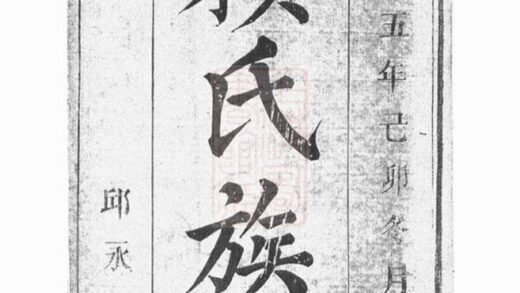 五年己卯冬月
氏族
邱永